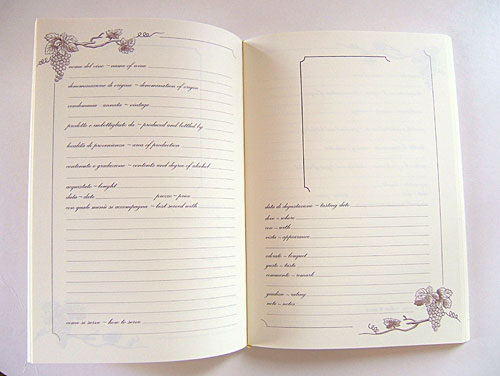 nome del vino ~ name of wine
denominazione di origine ~ denomination of origin
vendemmia ~ annata ~ vintage
prodotto e imbottigliato da ~ produced and bottled by
località di provenienza ~ area of production
contenuto e gradazione ~ contents and degree of alcohol
acquistato ~ bought
data ~ date prezzo ~ price
con quale menù si accompagna ~ best served with
come si serve ~ how to serve
data di degustazione ~ tasting date
dove ~ where
con ~ with
vista ~ appearance
olfatto ~ bouquet
gusto ~ taste
commento ~ remark
giudizio ~ rating
note ~ notes